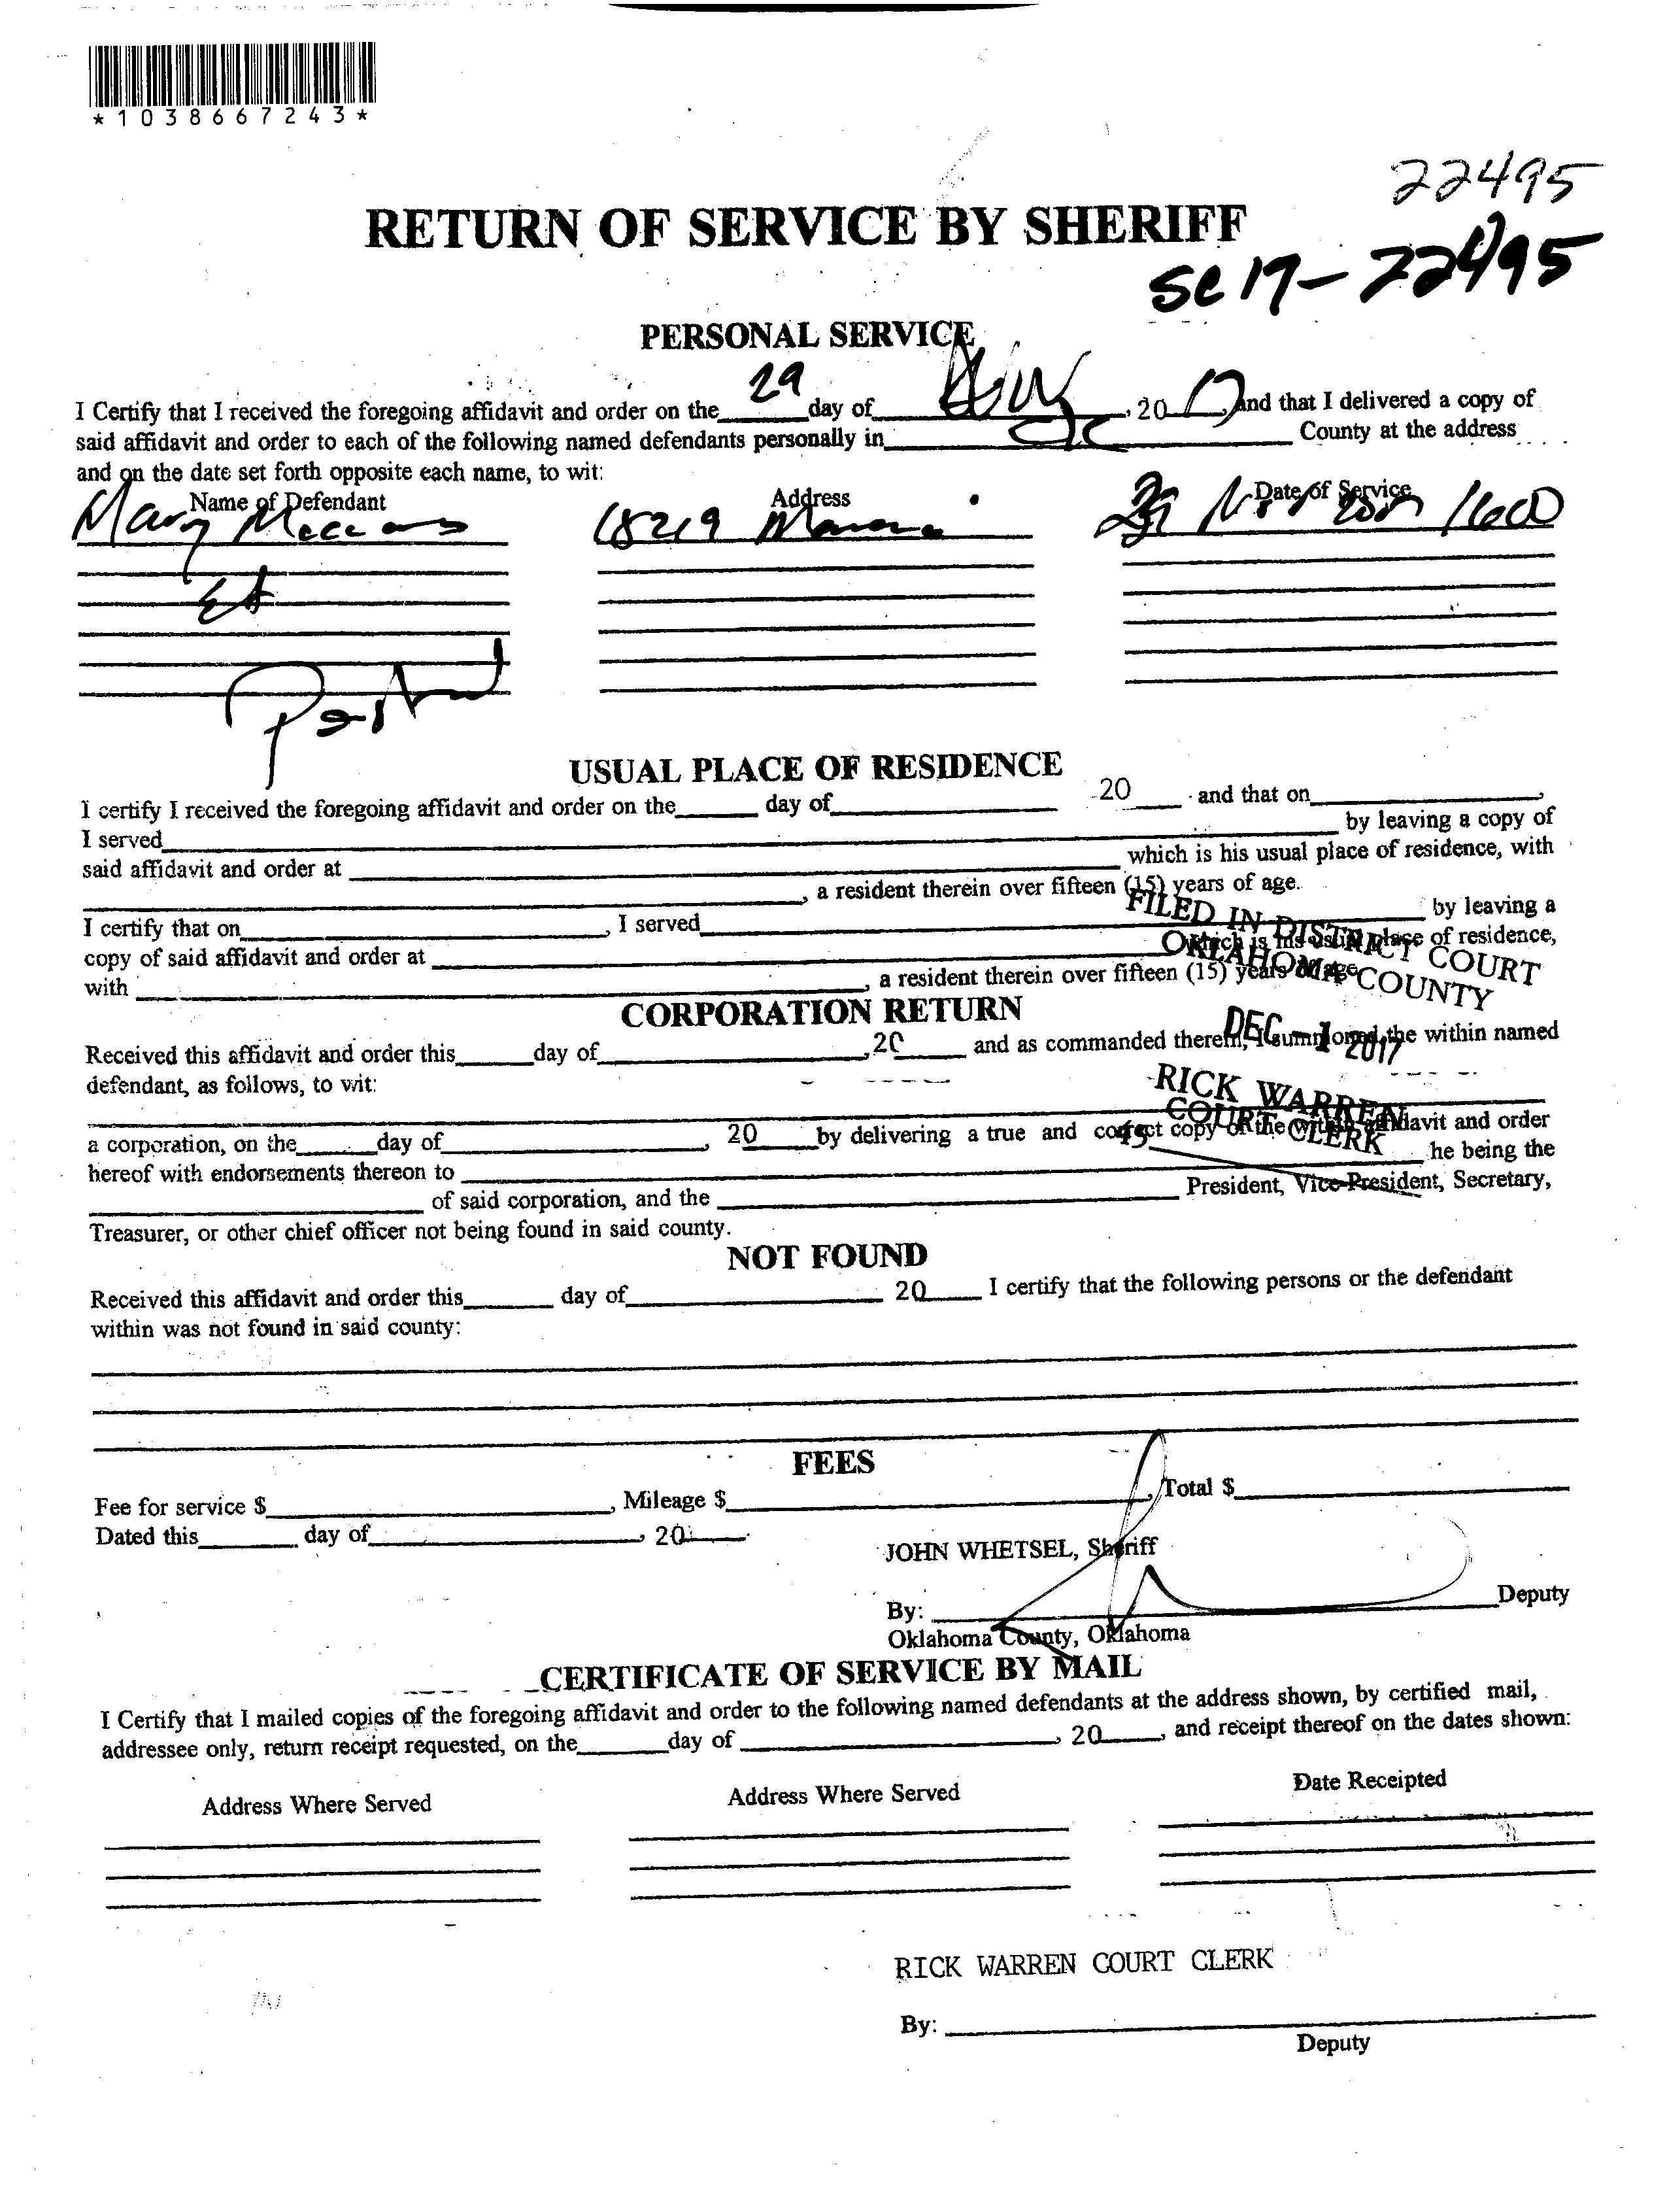 *1038667243*
22495
RETURN OF SERVICE BY SHERIFF
SC 17-22495
PERSONAL SERVICE
I Certify that I received the foregoing affidavit and order on the 29 day of Nov, 20 17, and that I delivered a copy of
said affidavit and order to each of the following named defendants personally in OK County at the address
and on the date set forth opposite each name, to wit:
Name of Defendant Address Date of Service
Mary 18219 29 Nov 2017 1600
USUAL PLACE OF RESIDENCE
I certify I received the foregoing affidavit and order on the____ day of____ 20____ and that on____,
I served____ by leaving a copy of
said affidavit and order at ____ which is his usual place of residence, with
____, a resident therein over fifteen (15) years of age.
I certify that on____, I served____ by leaving a
copy of said affidavit and order at ____ which is his usual place of residence,
with ____, a resident therein over fifteen (15) years of age
FILED IN DISTRICT COURT
OKLAHOMA COUNTY
CORPORATION RETURN
Received this affidavit and order this____day of____, 20____ and as commanded therein, I summoned the within named
DEC -1 2017
defendant, as follows, to wit:
RICK WARREN
COURT CLERK
45
a corporation, on the____day of____, 20____by delivering a true and correct copy of the within affidavit and order
hereof with endorsements thereon to ____ he being the
____ of said corporation, and the ____ President, Vice-President, Secretary,
Treasurer, or other chief officer not being found in said county.
NOT FOUND
Received this affidavit and order this____ day of____ 20____ I certify that the following persons or the defendant
within was not found in said county:
FEES
Fee for service $____, Mileage $____, Total $____
Dated this____ day of____, 20____.
JOHN WHETSEL, Sheriff
By: ____Deputy
Oklahoma County, Oklahoma
CERTIFICATE OF SERVICE BY MAIL
I Certify that I mailed copies of the foregoing affidavit and order to the following named defendants at the address shown, by certified mail,
addressee only, return receipt requested, on the____day of ____, 20____, and receipt thereof on the dates shown:
Address Where Served Address Where Served Date Receipted
RICK WARREN COURT CLERK
By: ____
Deputy